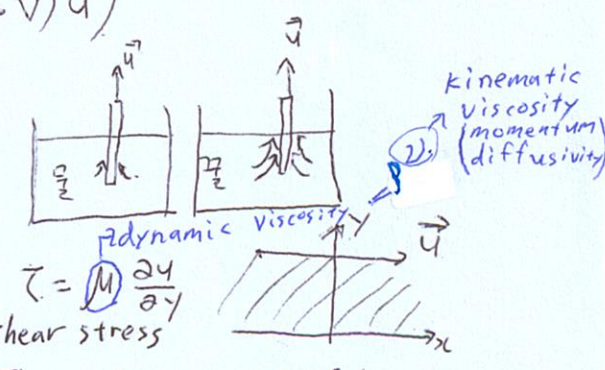 ∇)u)
u⃗
u⃗
kinematic
viscosity
(momentum
diffusivity)
ν
ρ
dynamic viscosity
y
u⃗
τ = μ ∂u/∂y
x
hear stress